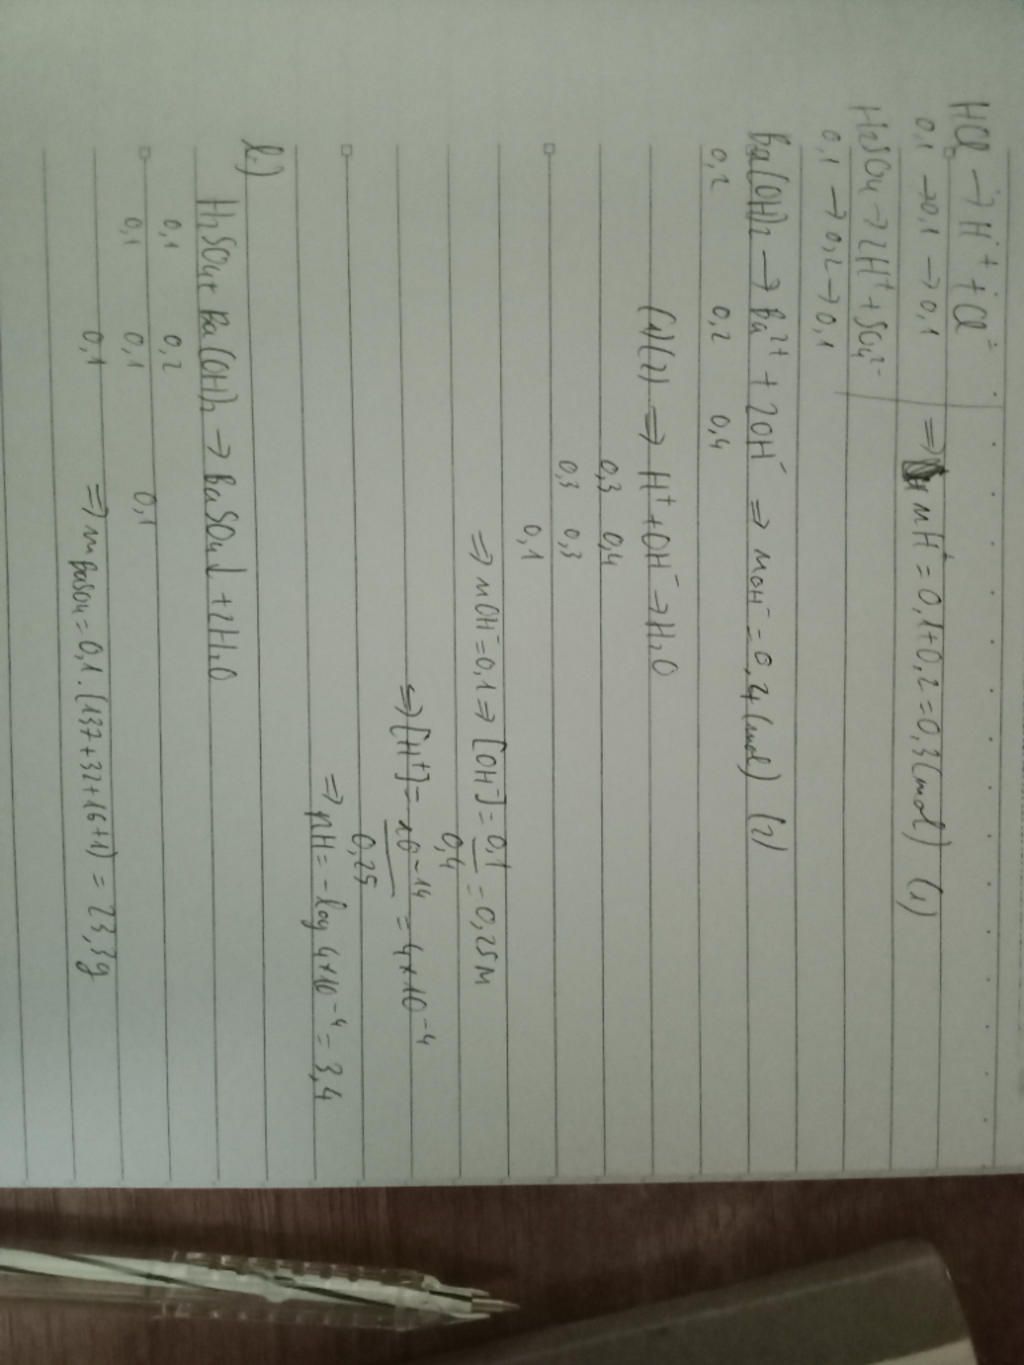 HCl → H⁺ + Cl⁻
0,1 → 0,1 → 0,1 ⇒ nH⁺ = 0,1+0,2 = 0,3 (mol) (1)
H₂SO₄ → 2H⁺ + SO₄²⁻
0,1 → 0,2 → 0,1
Ba(OH)₂ → Ba²⁺ + 2OH⁻ ⇒ nOH⁻ = 0,4 (mol) (2)
0,2 0,2 0,4
(1)(2) ⇒ H⁺ + OH⁻ → H₂O
0,3 0,4
0,3 0,3
0,1
⇒ nOH⁻ = 0,1 ⇒ [OH⁻] = 0,1/0,4 = 0,25M
⇒ [H⁺] = 10⁻¹⁴/0,25 = 4×10⁻⁴
⇒ pH = -log 4×10⁻⁴ = 3,4
b.)
H₂SO₄ + Ba(OH)₂ → BaSO₄↓ + 2H₂O
0,1 0,2
0,1 0,1 0,1
0,1
⇒ mBaSO₄ = 0,1.(137+32+16+1) = 23,3g